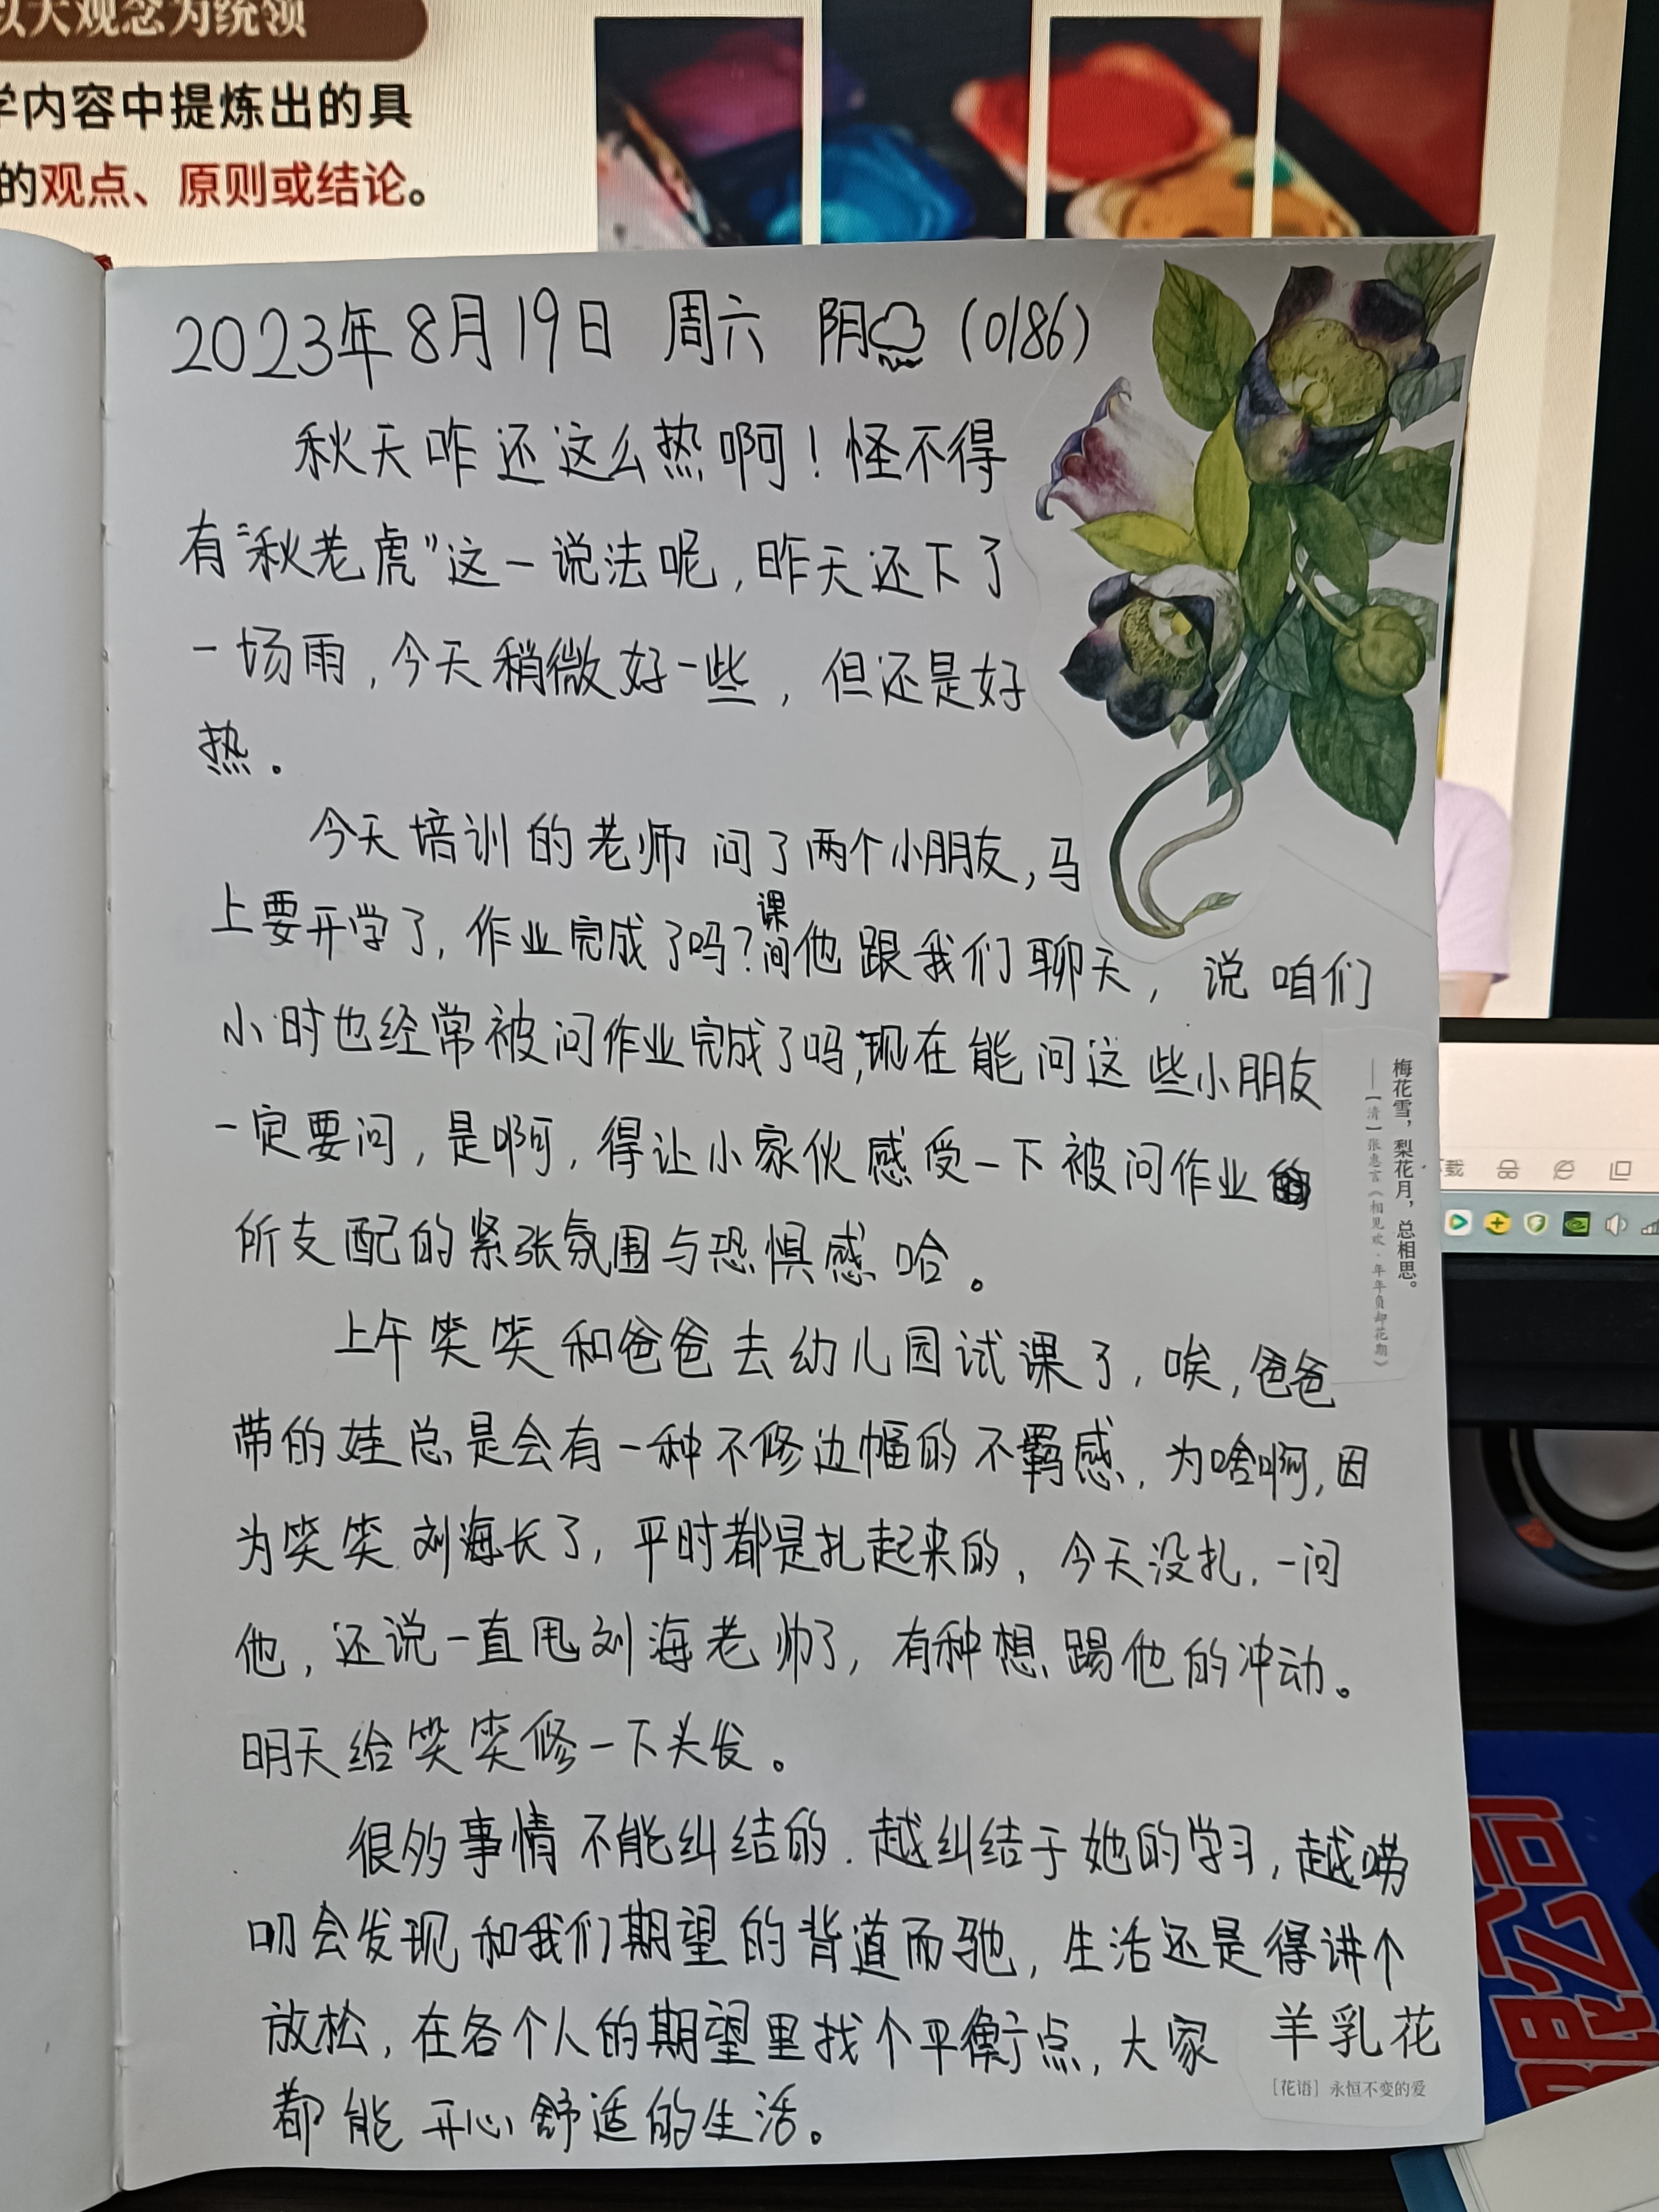 以大观念为统领
学内容中提炼出的具
的观点、原则或结论。
2023年8月19日 周六 阴 (0186)
秋天咋还这么热啊！怪不得
有“秋老虎”这一说法呢，昨天还下了
一场雨，今天稍微好一些，但还是好
热。
今天培训的老师问了两个小朋友，马
上要开学了，作业完成了吗？课间他跟我们聊天，说咱们
小时也经常被问作业完成了吗，现在能问这些小朋友
一定要问，是啊，得让小家伙感受一下被问作业
所支配的紧张氛围与恐惧感哈。
上午笑笑和爸爸去幼儿园试课了，唉，爸爸
带的娃总是会有一种不修边幅的不羁感，为啥啊，因
为笑笑刘海长了，平时都是扎起来的，今天没扎，一问
他，还说一直甩刘海老帅了，有种想踢他的冲动。
明天给笑笑修一下头发。
很多事情不能纠结的．越纠结于她的学习，越唠
叨会发现和我们期望的背道而驰，生活还是得讲个
放松，在各个人的期望里找个平衡点，大家
都能开心舒适的生活。
梅花雪，梨花月，总相思。
——［清］张惠言《相见欢·年年负却花期》
羊乳花
［花语］永恒不变的爱
下载
限公司